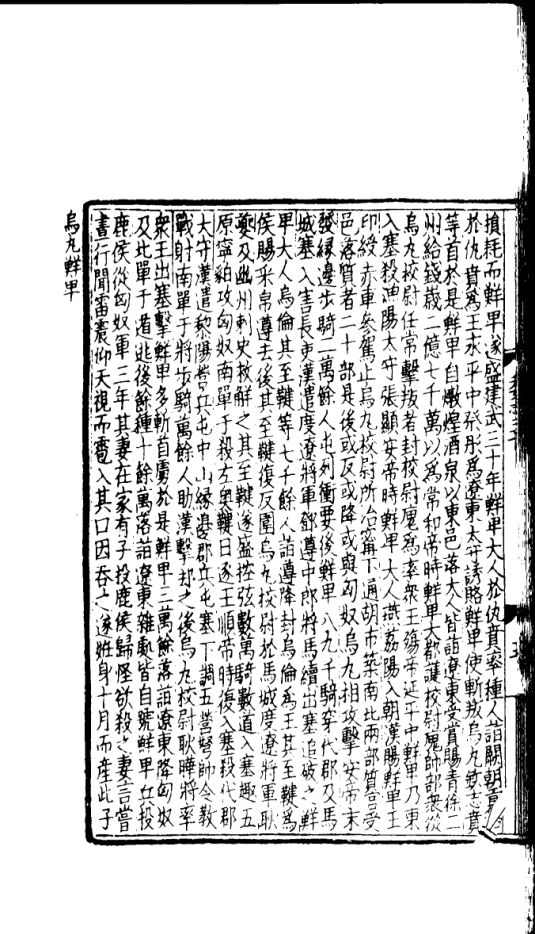 損耗而鮮卑遂盛建武三十年鮮卑大人於仇賁率種人詣闕朝貢
於仇賁為王永平中祭肜為遼東太守誘賂鮮卑使斬叛烏丸欽志賁
等首於是鮮卑自燉煌酒泉以東邑落大人皆詣遼東受賞賜青徐二
州給錢歲二億七千萬以為常和帝時鮮卑大都護校尉廆帥部衆從
烏丸校尉任常擊叛者封校尉廆為率衆王殤帝延平中鮮卑乃東
入塞殺漁陽太守張顯安帝時鮮卑大人燕荔陽入朝漢賜鮮卑王
印綬赤車參駕止烏丸校尉所治甯下通胡市築南北兩部質宮受
邑落質者二十部是後或反或降或與匈奴烏丸相攻擊安帝末
發緣邊步騎二萬餘人屯列衝要後鮮卑八九千騎穿代郡及馬
城塞入害長吏漢遣度遼將軍鄧遵中郎將馬續出塞追破之鮮
卑大人烏倫其至鞬等七千餘人詣遵降封烏倫為王其至鞬為
侯賜采帛遵去後其至鞬復反圍烏丸校尉於馬城度遼將軍耿
夔及幽州刺史救解之其至鞬遂盛控弦數萬騎數道入塞趣五
原寧貊攻匈奴南單于殺左奧鞬日逐王順帝時復入塞殺代郡
太守漢遣黎陽營兵屯中山緣邊郡兵屯塞下調五營弩帥令教
戰射南單于將步騎萬餘人助漢擊却之後烏丸校尉耿曄將率
衆王出塞擊鮮卑多斬首虜於是鮮卑三萬餘落詣遼東降匈奴
及北單于遁逃後餘種十餘萬落詣遼東雜處皆自號鮮卑兵投
鹿侯從匈奴軍三年其妻在家有子投鹿侯歸怪欲殺之妻言嘗
晝行聞雷震仰天視而雹入其口因吞之遂妊身十月而產此子
烏丸鮮卑